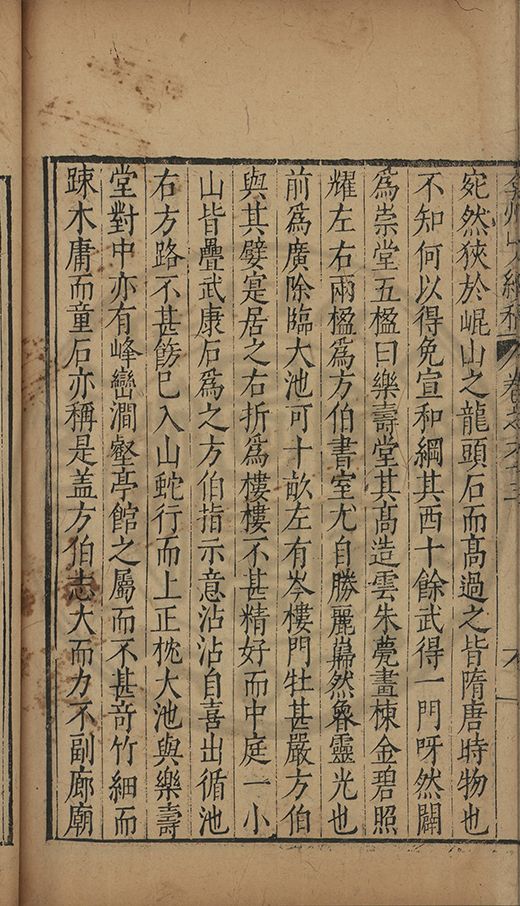 弇州山人續稿 卷之六十三
宛然狹於崐山之龍頭石而髙過之皆隋唐時物也
不知何以得免宣和綱其西十餘武得一門呀然闢
為崇堂五楹曰樂壽堂其髙造雲朱甍畫棟金碧照
耀左右兩楹為方伯書室尤自勝麗巋然魯靈光也
前為廣除臨大池可十畝左有岑樓門牡甚嚴方伯
與其嬖寔居之右折為樓樓不甚精好而中庭一小
山皆疊武康石為之方伯指示意沾沾自喜出循池
右方路不甚飭已入山蛇行而上正枕大池與樂壽
堂對中亦有峰巒澗壑亭館之屬而不甚竒竹細而
踈木庸而童石亦稱是盖方伯志大而力不副廊廟